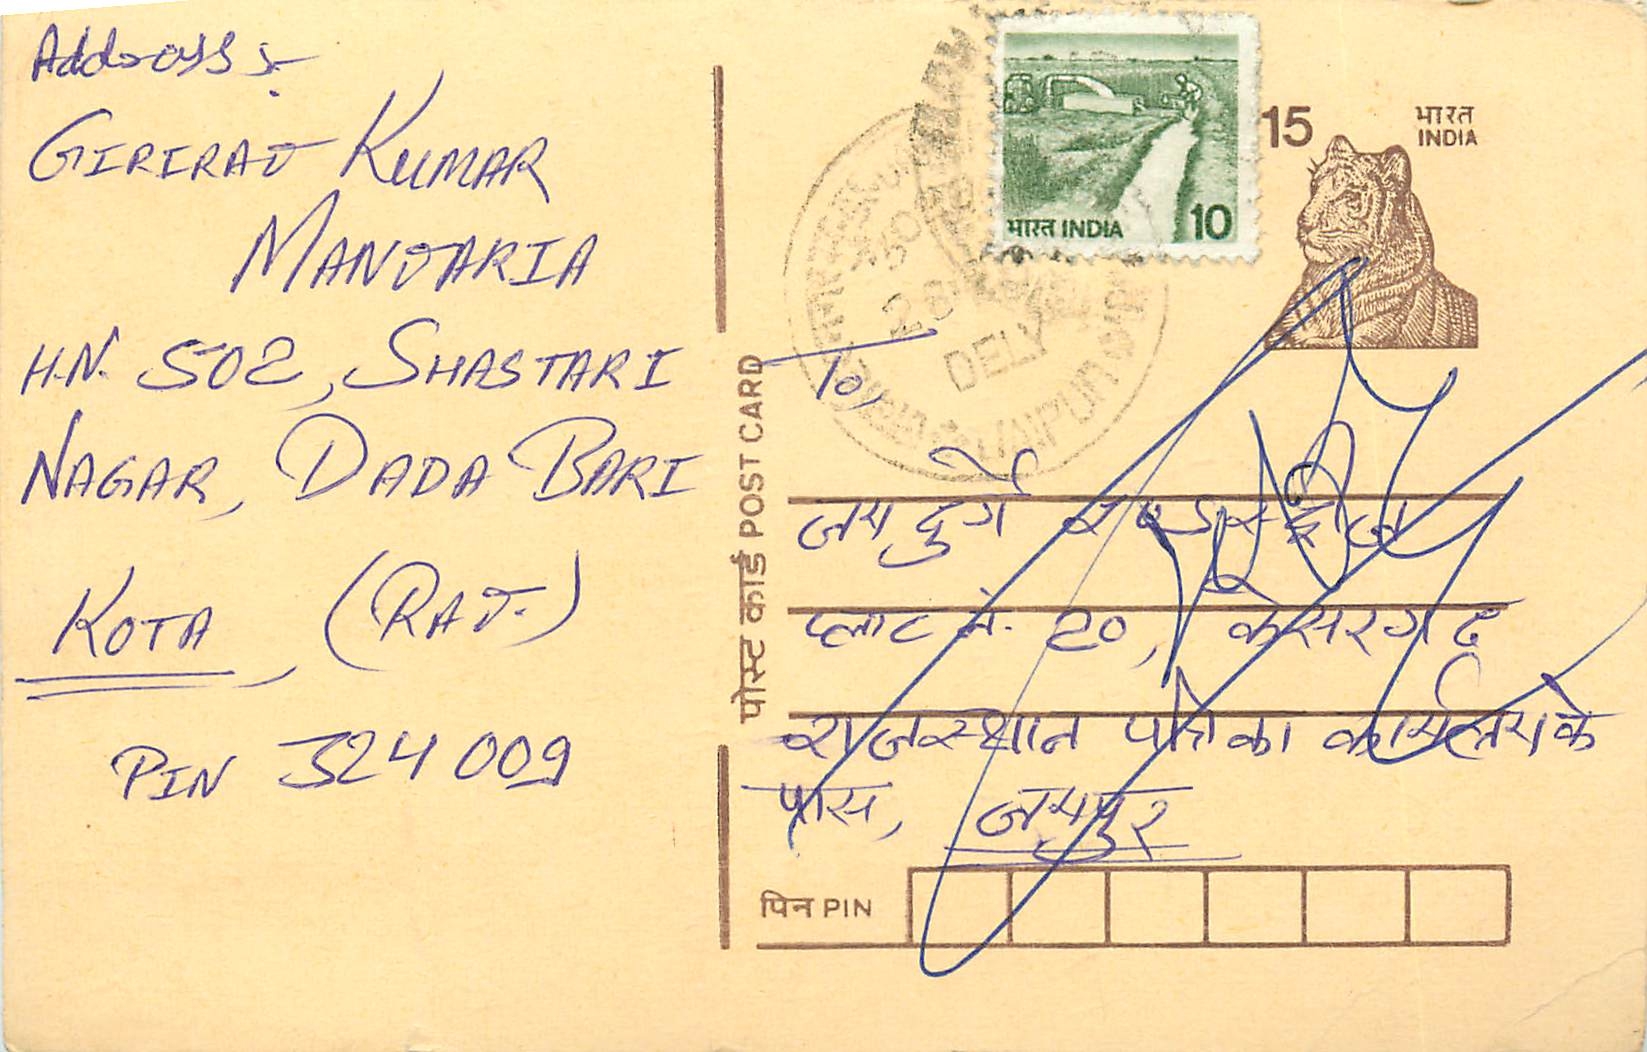 Address :-
GIRIRAJ KUMAR
MANJARIA
H.N. 502, SHASTARI
NAGAR, DADA BARI
KOTA, (RAJ.)
PIN 324009
भारत INDIA 10
15
भारत
INDIA
DELY
JAIPUR
पोस्ट कार्ड POST CARD
To,
जय दुर्गे
प्लाट नं. 20, केसरगढ
राजस्थान पत्रिका कार्यालय के
पास, जयपुर
पिन PIN